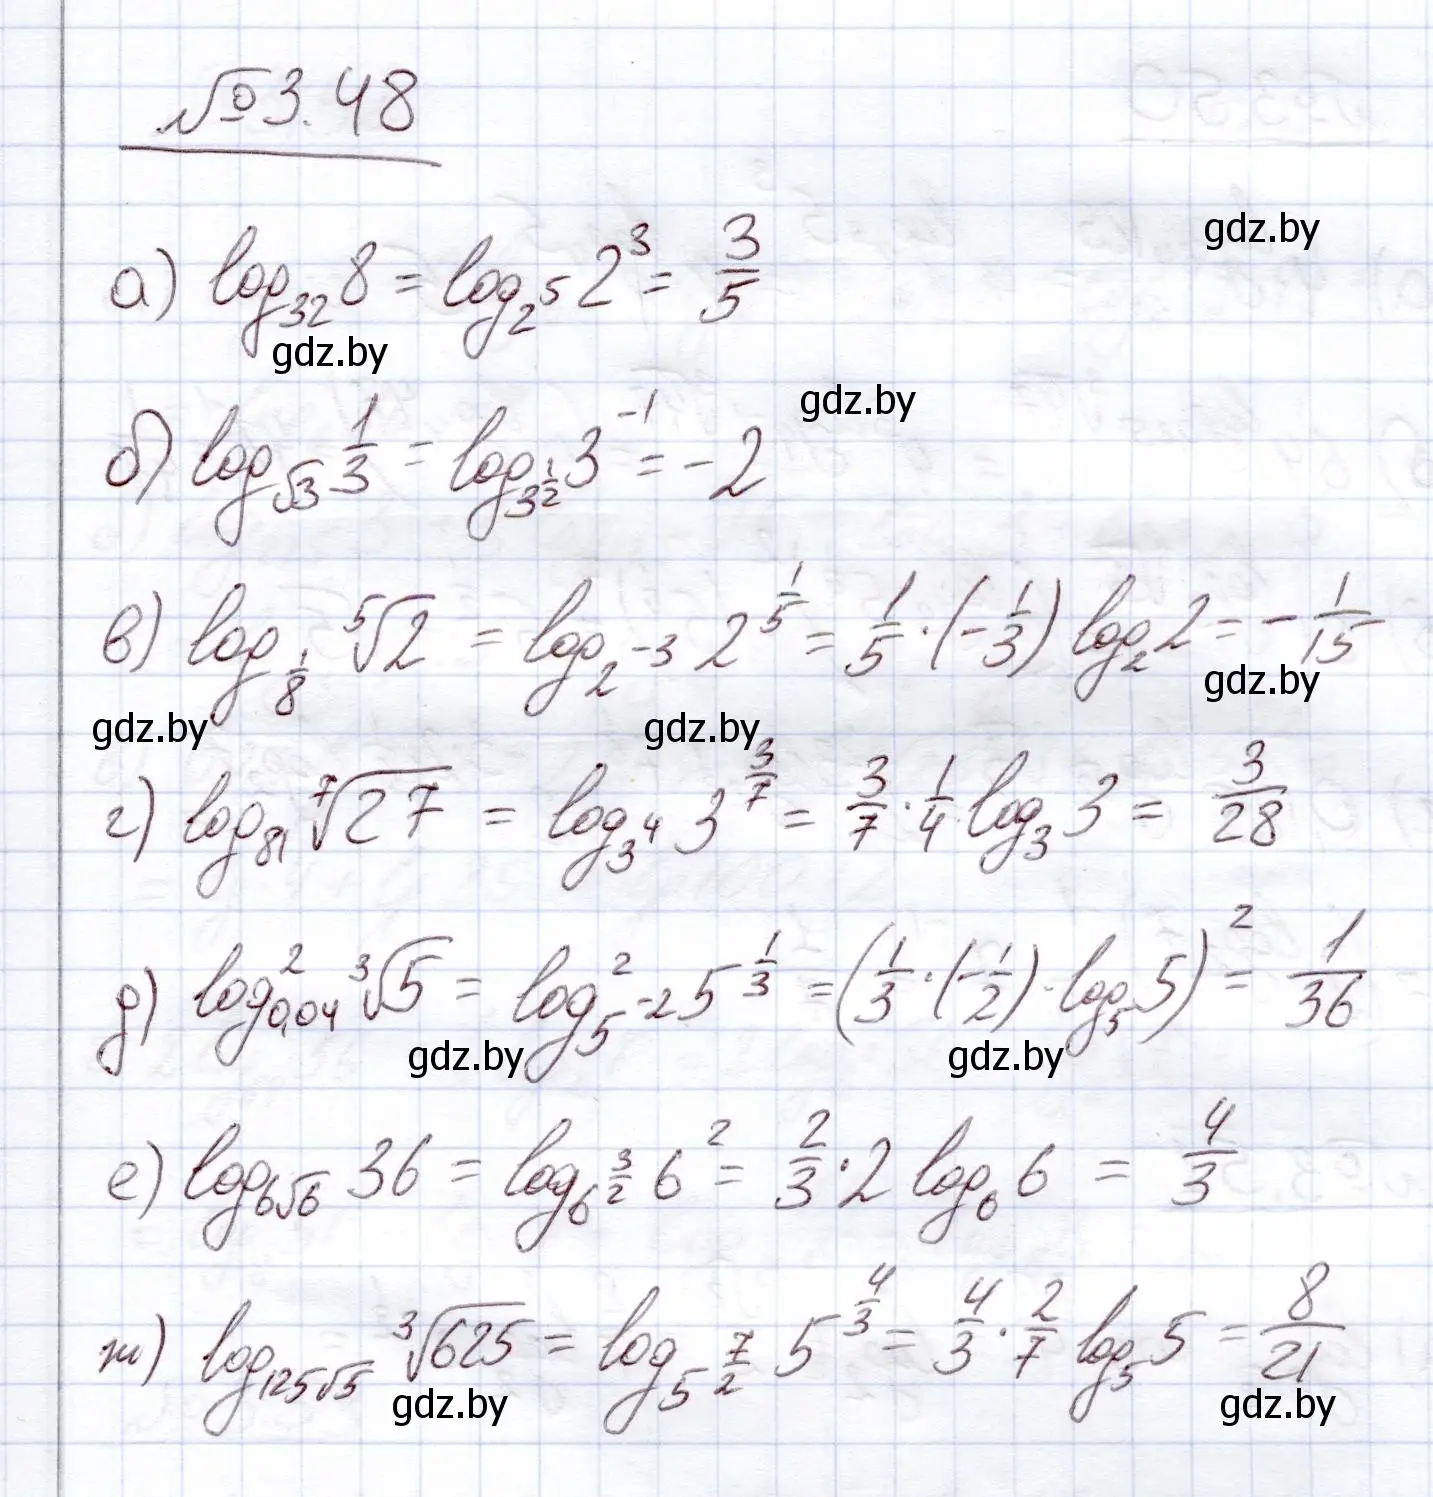 №3.48
gdz.by
а) log₃₂ 8 = log_{2^5} 2³ = 3/5
gdz.by
gdz.by
б) log_{√3} 1/3 = log_{3^{1/2}} 3⁻¹ = -2
в) log_{1/8} ⁵√2 = log_{2^{-3}} 2^{1/5} = 1/5 · (-1/3) log₂ 2 = -1/15
gdz.by
gdz.by gdz.by
г) log₈₁ ⁷√27 = log_{3^4} 3^{3/7} = 3/7 · 1/4 log₃ 3 = 3/28
д) log²_{0,04} ³√5 = log²_{5^{-2}} 5^{1/3} = (1/3 · (-1/2) · log₅ 5)² = 1/36
gdz.by gdz.by
е) log_{6√6} 36 = log_{6^{3/2}} 6² = 2/3 · 2 log₆ 6 = 4/3
ж) log_{125√5} ³√625 = log_{5^{7/2}} 5^{4/3} = 4/3 · 2/7 log₅ 5 = 8/21
gdz.by gdz.by